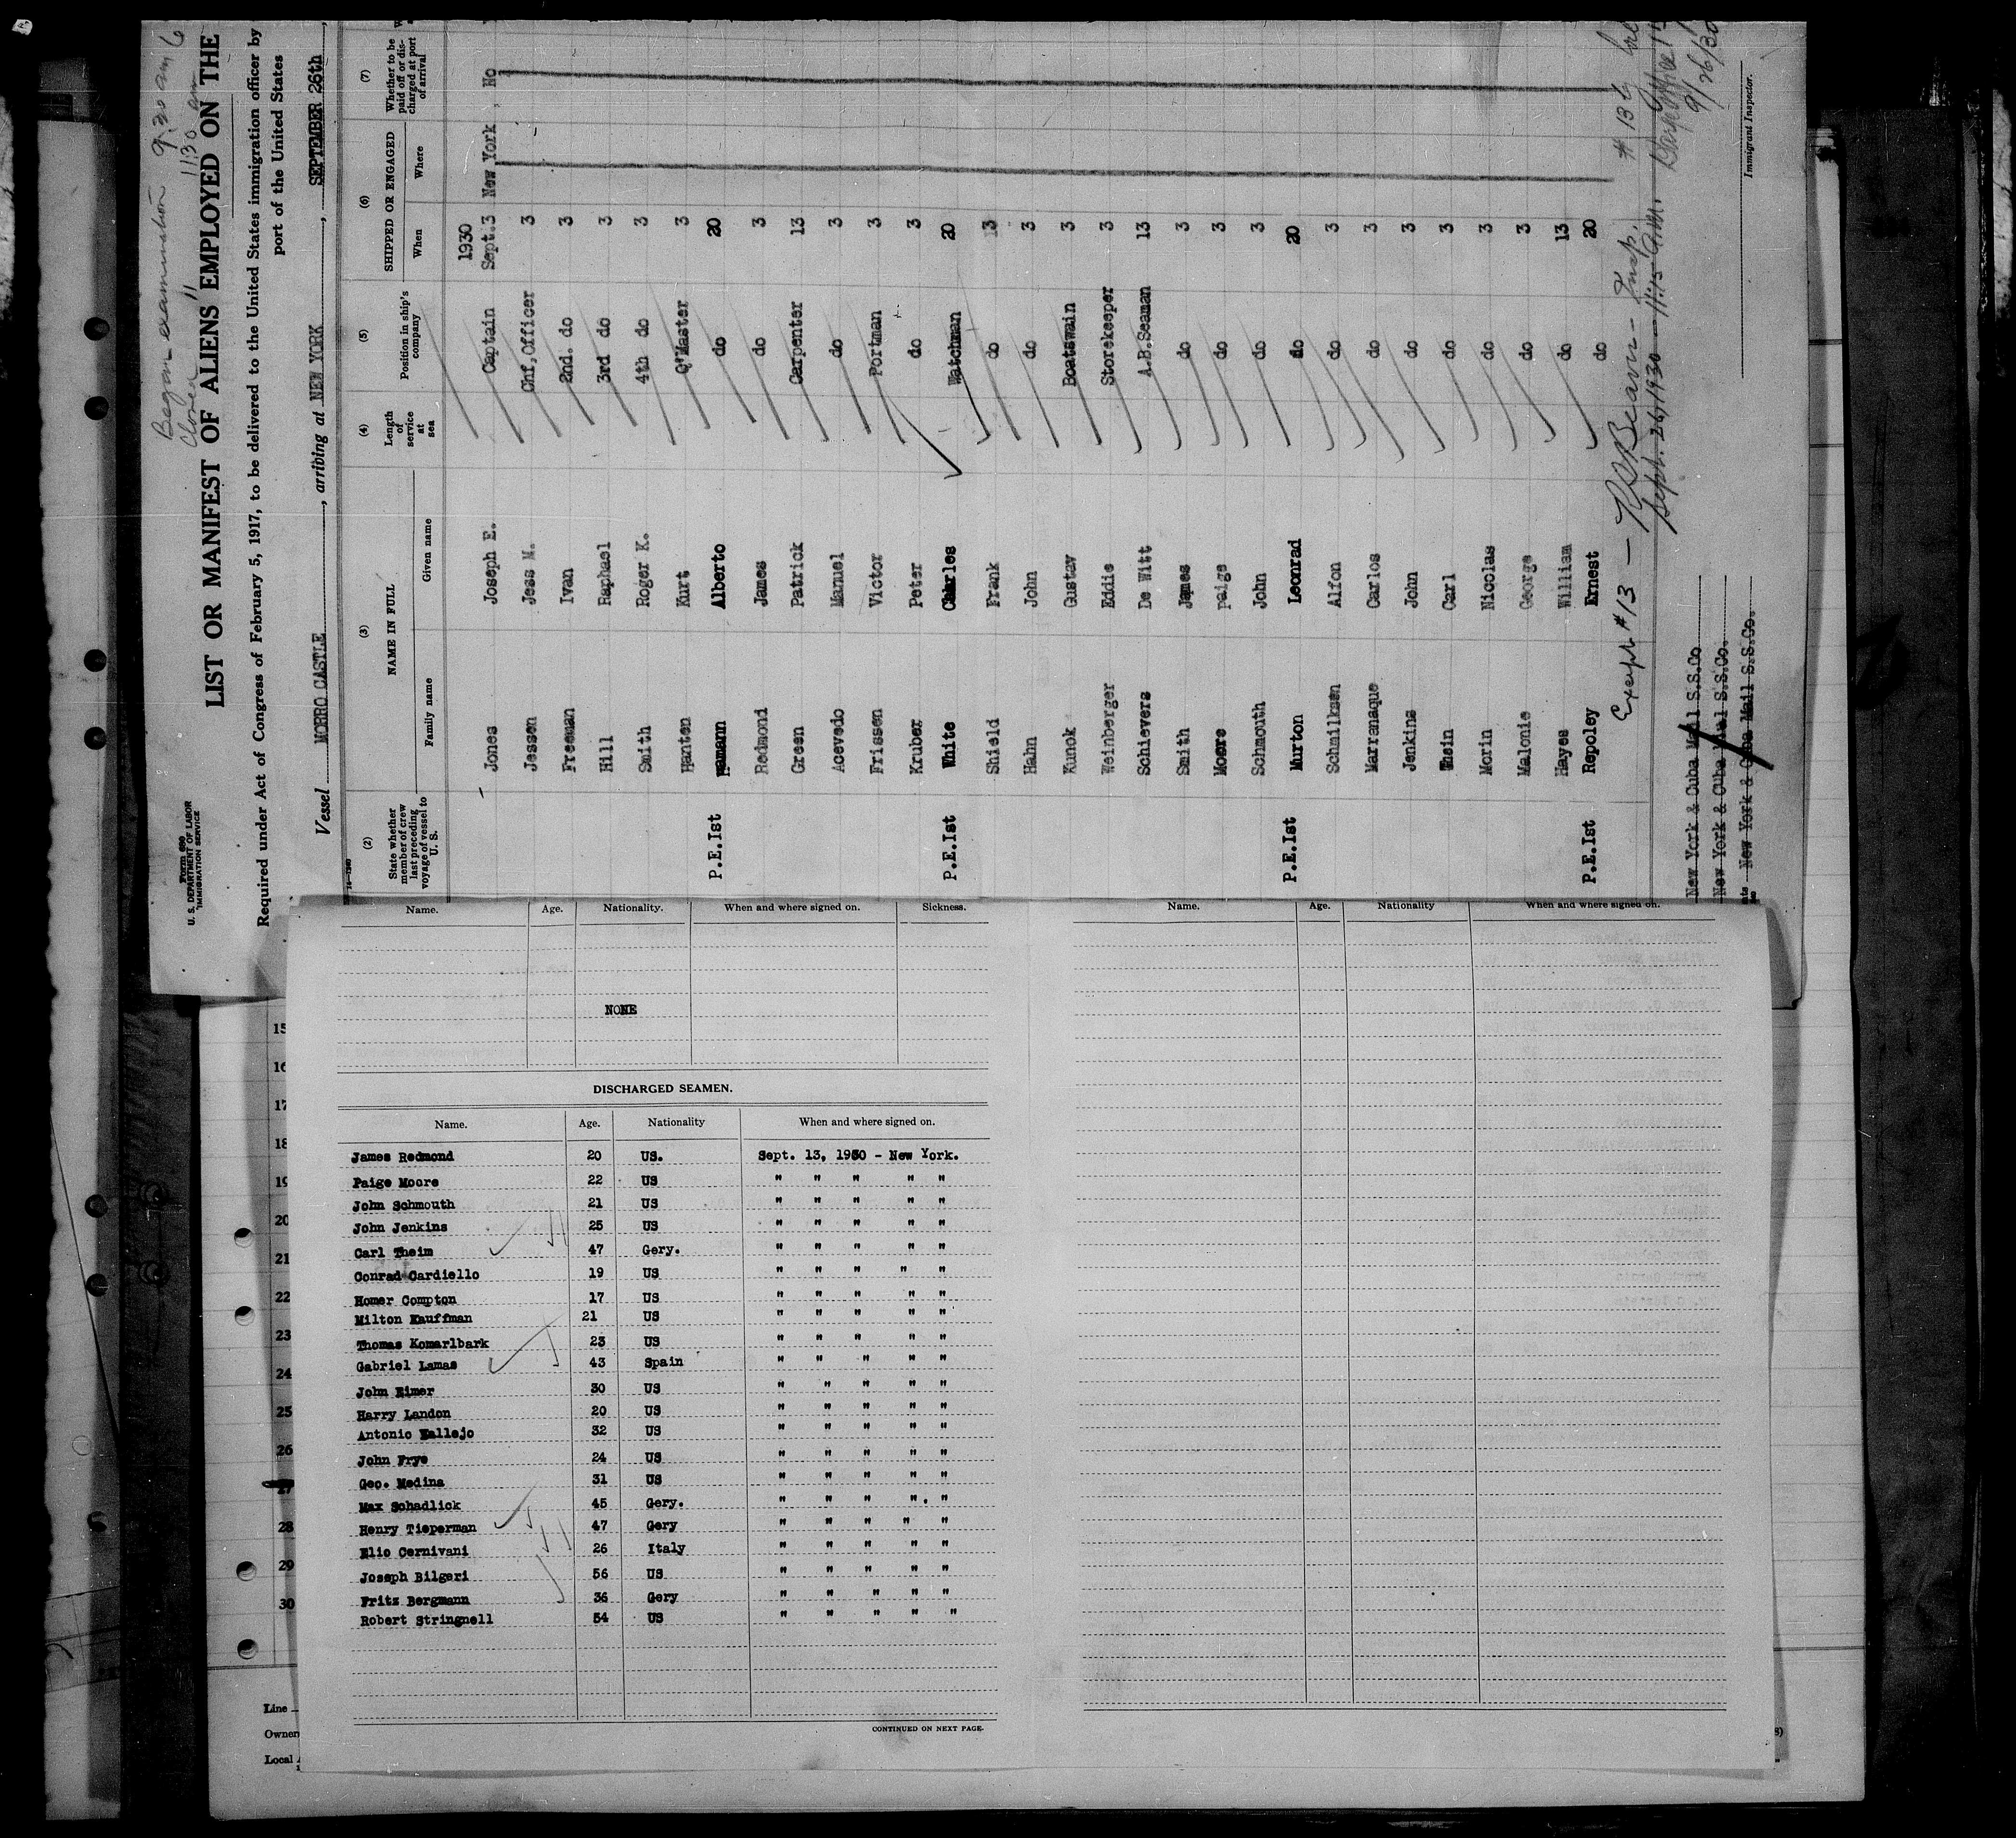 Began examination 9:30 am
Closed " 11:30 am
6
Form 689
U. S. DEPARTMENT OF LABOR
IMMIGRATION SERVICE
LIST OR MANIFEST OF ALIENS EMPLOYED ON THE
Required under Act of Congress of February 5, 1917, to be delivered to the United States immigration officer by
port of the United States
Vessel MORRO CASTLE, arriving at NEW YORK, SEPTEMBER 26th,
(2) (3) (4) (5) (6) (7)
State whether member of crew last preceding voyage of vessel to U. S. NAME IN FULL Length of service at sea Position in ship's company SHIPPED OR ENGAGED Whether to be paid off or discharged at port of arrival
Family name Given name When Where
1930
Jones Joseph E. Captain Sept.3 New York, No
Jessen Jess M. Chf,Officer 3
Freeman Ivan 2nd. do 3
Hill Raphael 3rd do 3
Smith Roger K. 4th do 3
Hanten Kurt Q'Master 3
P.E.Ist Hamann Alberto do 20
Redmond James do 3
Green Patrick Carpenter 13
Acevedo Manuel do 3
Frissen Victor Portman 3
Kruber Peter do 3
P.E.Ist White Charles Watchman 20
Shield Frank do 13
Hahn John do 3
Kunok Gustav Boatswain 3
Weinberger Eddie Storekeeper 3
Schievers De Witt A.B.Seaman 13
Smith James do 3
Moore paige do 3
Schmouth John do 3
P.E.Ist Murton Leonrad do 20
Schmilksen Alfon do 3
Marranaque Carlos do 3
Jenkins John do 3
Thein Carl do 3
Morin Nicolas do 3
Malonie George do 3
Hayes William do 13
P.E.Ist Repoley Ernest do 20
Except #13 — Insp. # 13
Sept. 26, 1930 — 11:15 a.m. 9/26/30
New York & Cuba Mail S.S.Co.
New York & Cuba Mial S.S.Co.
New York & Cuba Mail S.S.Co.
Immigrant Inspector.
Name. Age. Nationality. When and where signed on. Sickness.
NONE
DISCHARGED SEAMEN.
Name. Age. Nationality When and where signed on.
James Redmond 20 US. Sept. 13, 1930 - New York.
Paige Moore 22 US " " " " "
John Schmouth 21 US " " " " "
John Jenkins 25 US " " " " "
Carl Theim 47 Gery. " " " " "
Conrad Cardiello 19 US " " " " "
Homer Compton 17 US " " " " "
Milton Kauffman 21 US " " " " "
Thomas Komarlbark 23 US " " " " "
Gabriel Lamas 43 Spain " " " " "
John Eimer 30 US " " " " "
Harry Landon 20 US " " " " "
Antonio Vallejo 32 US " " " " "
John Frye 24 US " " " " "
Geo. Medina 31 US " " " " "
Max Schadlick 45 Gery. " " " ". "
Henry Tieperman 47 Gery " " " " "
Elio Cernivani 26 Italy " " " " "
Joseph Bilgeri 56 US " " " " "
Fritz Bergmann 36 Gery " " " " "
Robert Stringnell 54 US " " " " "
CONTINUED ON NEXT PAGE.
Name. Age. Nationality When and where signed on.
15
16
17
18
19
20
21
22
23
24
25
26
27
28
29
30
Line
Owner
Local